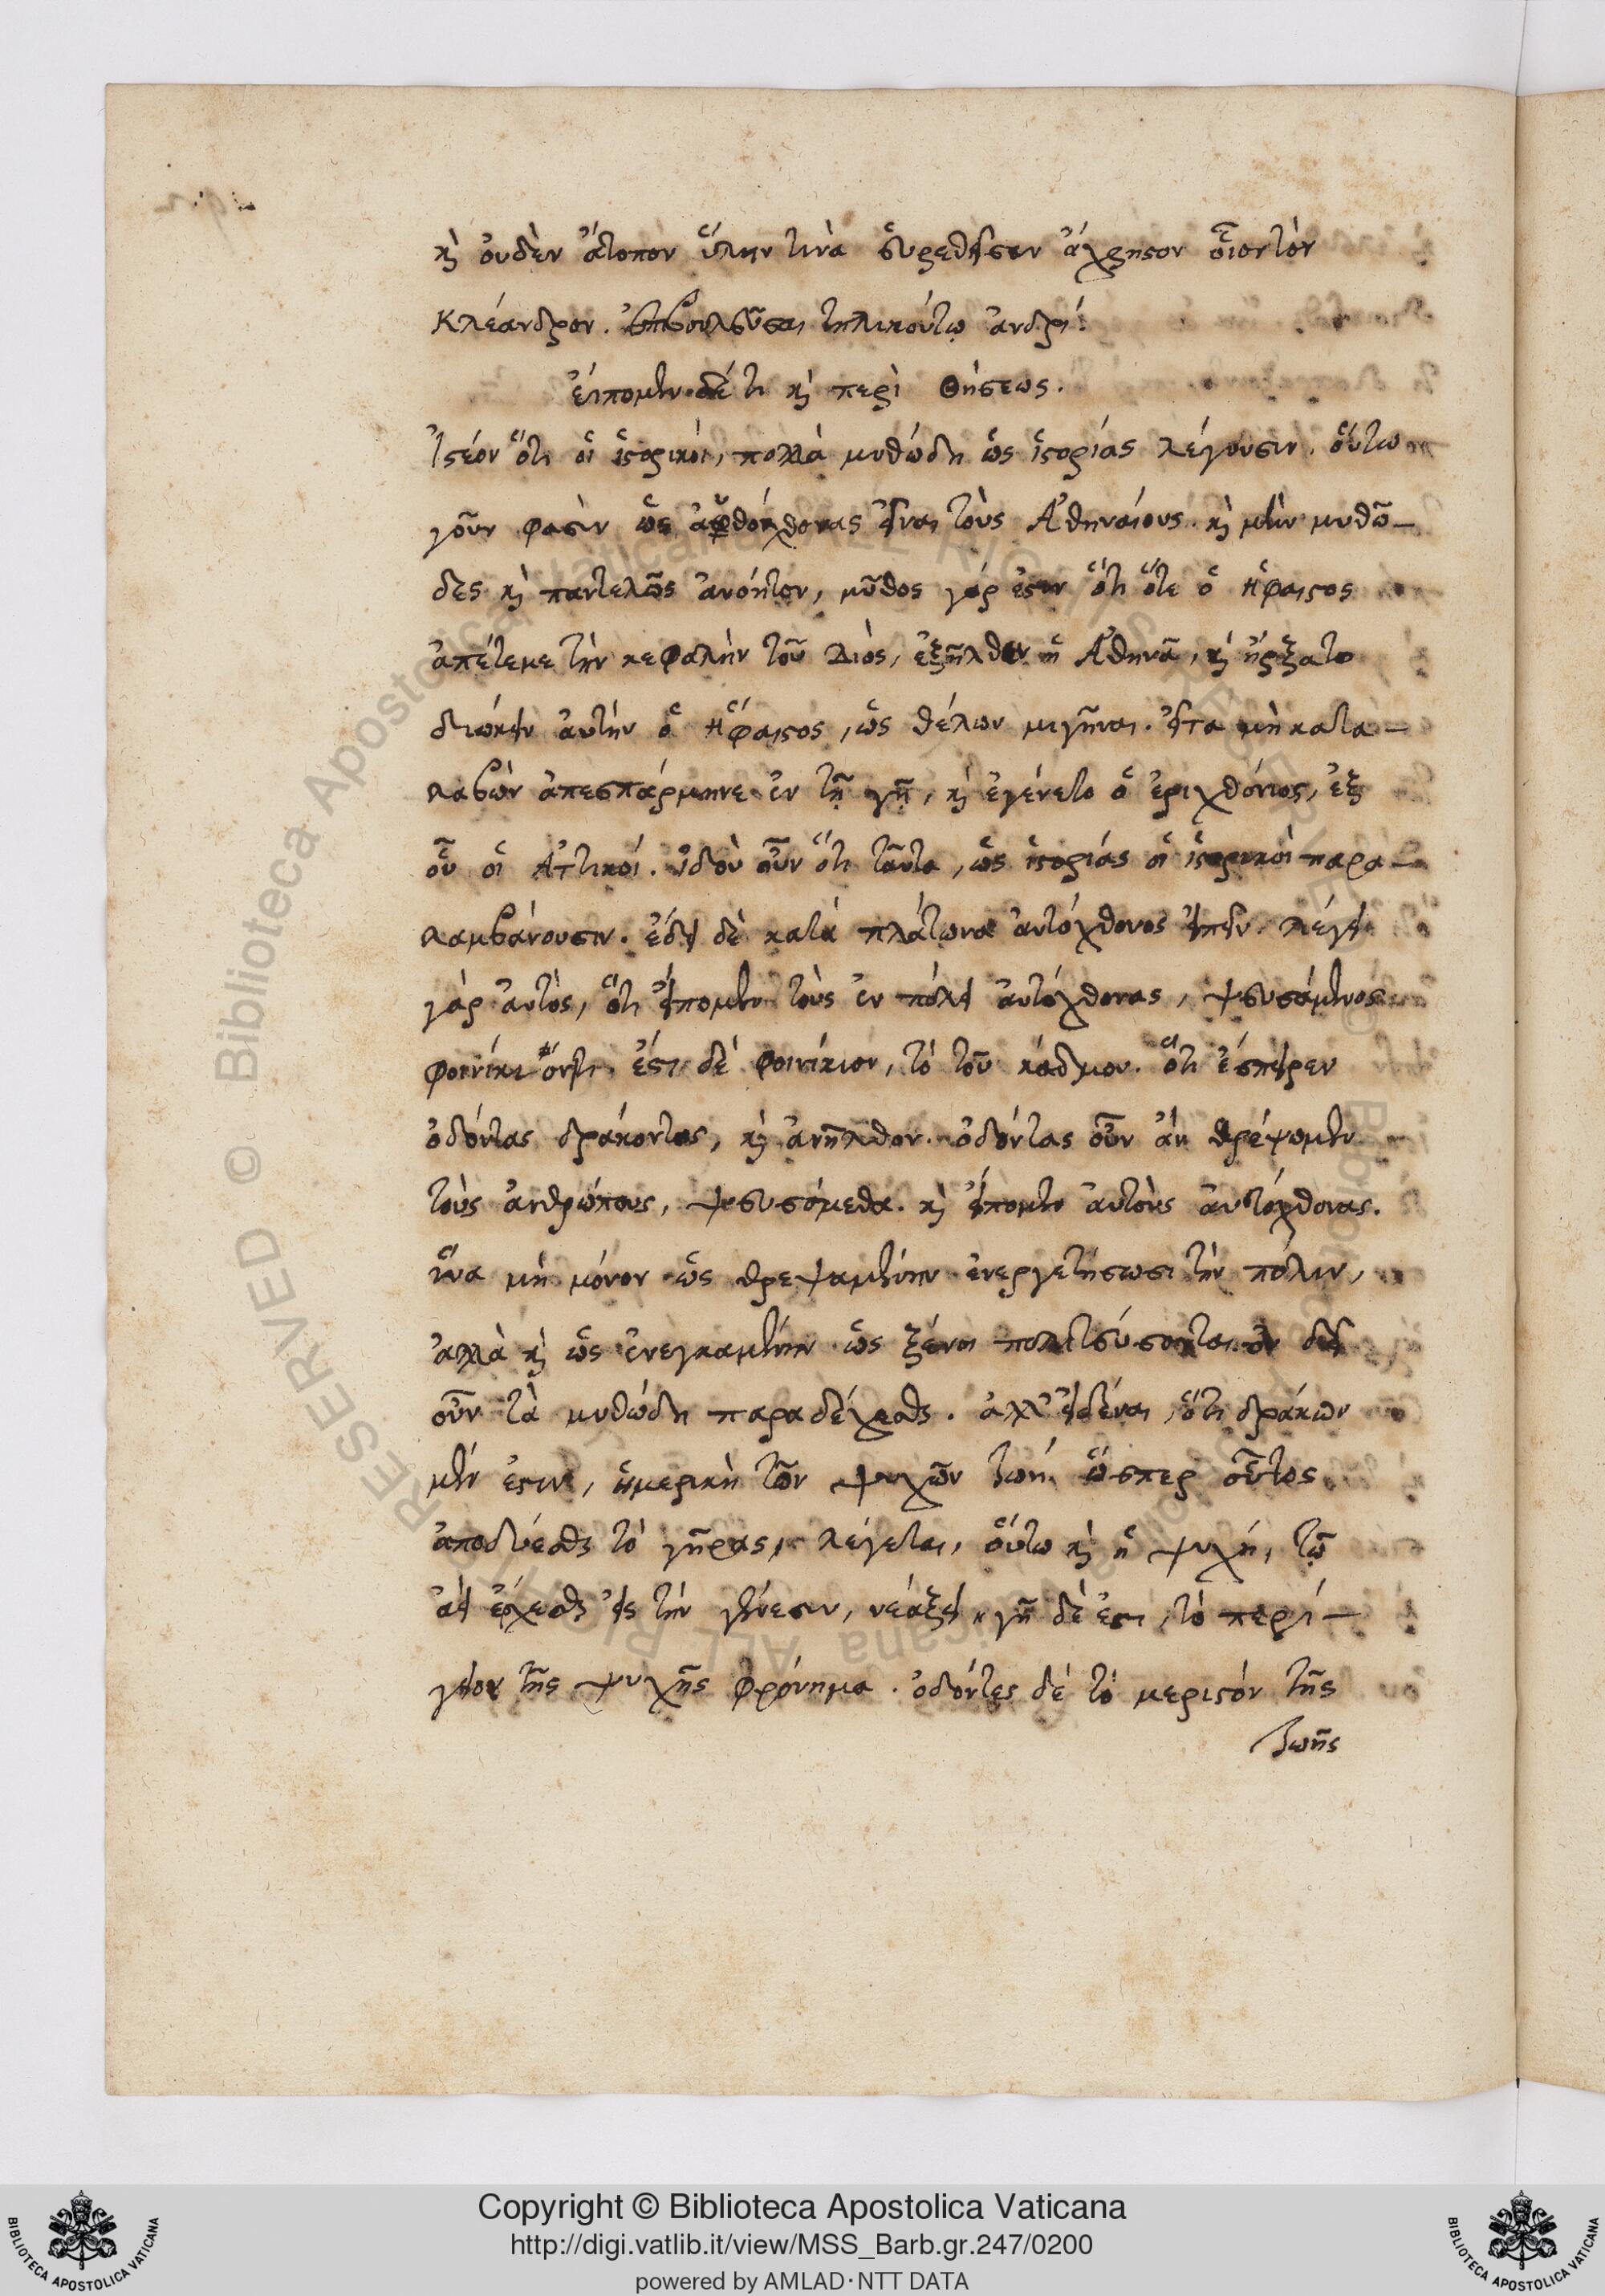 καὶ οὐδὲν ἄτοπον ὕλην τινὰ εὑρεθῆναι ἄχρηστον οἷον τὸν
Κλέανδρον. ἐπιβουλεῦσαι τηλικούτῳ ἀνδρί.
εἴπομεν δέ τι καὶ περὶ Θήσεως.
Ἰστέον ὅτι οἱ ἱστορικοί, πολλὰ μυθώδη ὡς ἱστορίας λέγουσιν. οὕτω
γοῦν φασὶν ὡς αὐτόχθονας εἶναι τοὺς Ἀθηναίους. καὶ μὴν μυθῶ–
δες καὶ παντελῶς ἀνόητον, μῦθος γάρ ἐστιν ὅτι ὅτε ὁ Ἥφαιστος
ἀπέτεμε τὴν κεφαλὴν τοῦ Διὸς, ἐξῆλθεν ἡ Ἀθηνᾶ, καὶ ἤρξατο
διώκειν αὐτήν ὁ Ἥφαιστος, ὡς θέλων μιγῆναι. εἶτα μὴ κατα–
λαβὼν ἀπεσπέρμηνε ἐν τῇ γῇ, καὶ ἐγένετο ὁ ἐριχθόνιος, ἐξ
οὗ οἱ Ἀττικοί. ἰδοὺ οὖν ὅτι ταῦτα, ὡς ἱστορίας οἱ ἱστορικοὶ παρα–
λαμβάνουσιν. ἔδει δὲ κατὰ πλάτωνα αὐτόχθονας εἰπεῖν. λέγει
γάρ αὐτός, ὅτι εἴπομεν τοὺς ἐν πόλει αὐτόχθονας, ψευσάμενος
ἔστι δέ φοινίκιον, τό τοῦ κάδμου. ὅτι ἔσπειρεν
ὀδόντας δράκοντος, καὶ ἀνῆλθον. ὀδόντας οὖν ἂν θρέψωμεν
τοὺς ἀνθρώπους, ψευσόμεθα. καὶ εἴπομεν αὐτοὺς αὐτόχθονας.
ἵνα μὴ μόνον ὡς θρεψαμένην εὐεργετήσωσι τὴν πόλιν,
ἀλλὰ καὶ ὡς ἐνεγκαμένην ὡς ξένοι πολιτεύσονται. οὐ δεῖ
οὖν τὰ μυθώδη παραδέχεσθαι. ἀλλ' εἰδέναι, ὅτι δράκων
μέν ἐστιν, ἡμερικὴ τῶν ψυχῶν ζωή. ὥσπερ οὗτος
ἀποδύεσθαι τὸ γῆρας, λέγεται, οὕτω καὶ ἡ ψυχή, τῷ
ἀεὶ ἔρχεσθαι εἰς τὴν γένεσιν, νεάζει, γῆ δὲ ἐστι, τὸ περί–
γειον τῆς ψυχῆς φρόνημα. ὀδόντες δέ τὸ μεριστόν τῆς
ζωῆς